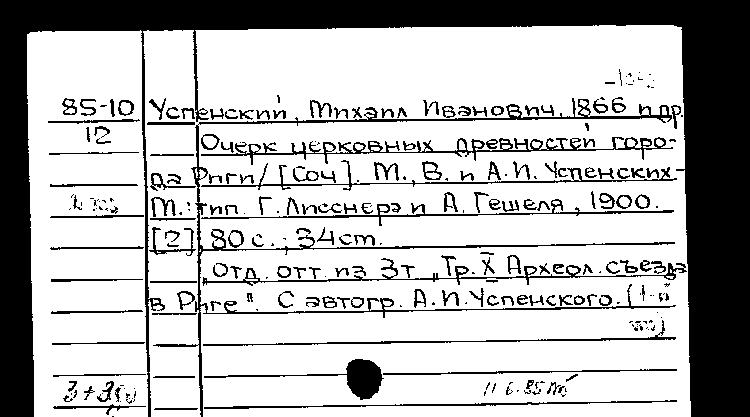 85-10 Успенский, Михаил Иванович, 1866 и др.
12 Очерк церковных древностей горо-
да Риги / [Соч]. М., В. и А.И. Успенских-
М.: тип. Г. Лисснера и А. Гешеля, 1900.
[2], 80 с.; 34 ст.
Отд. отт. из 3 т. „Тр. X Археол. съезда
в Риге". С автогр. А.И. Успенского. (1-й
экз)
11.6.85